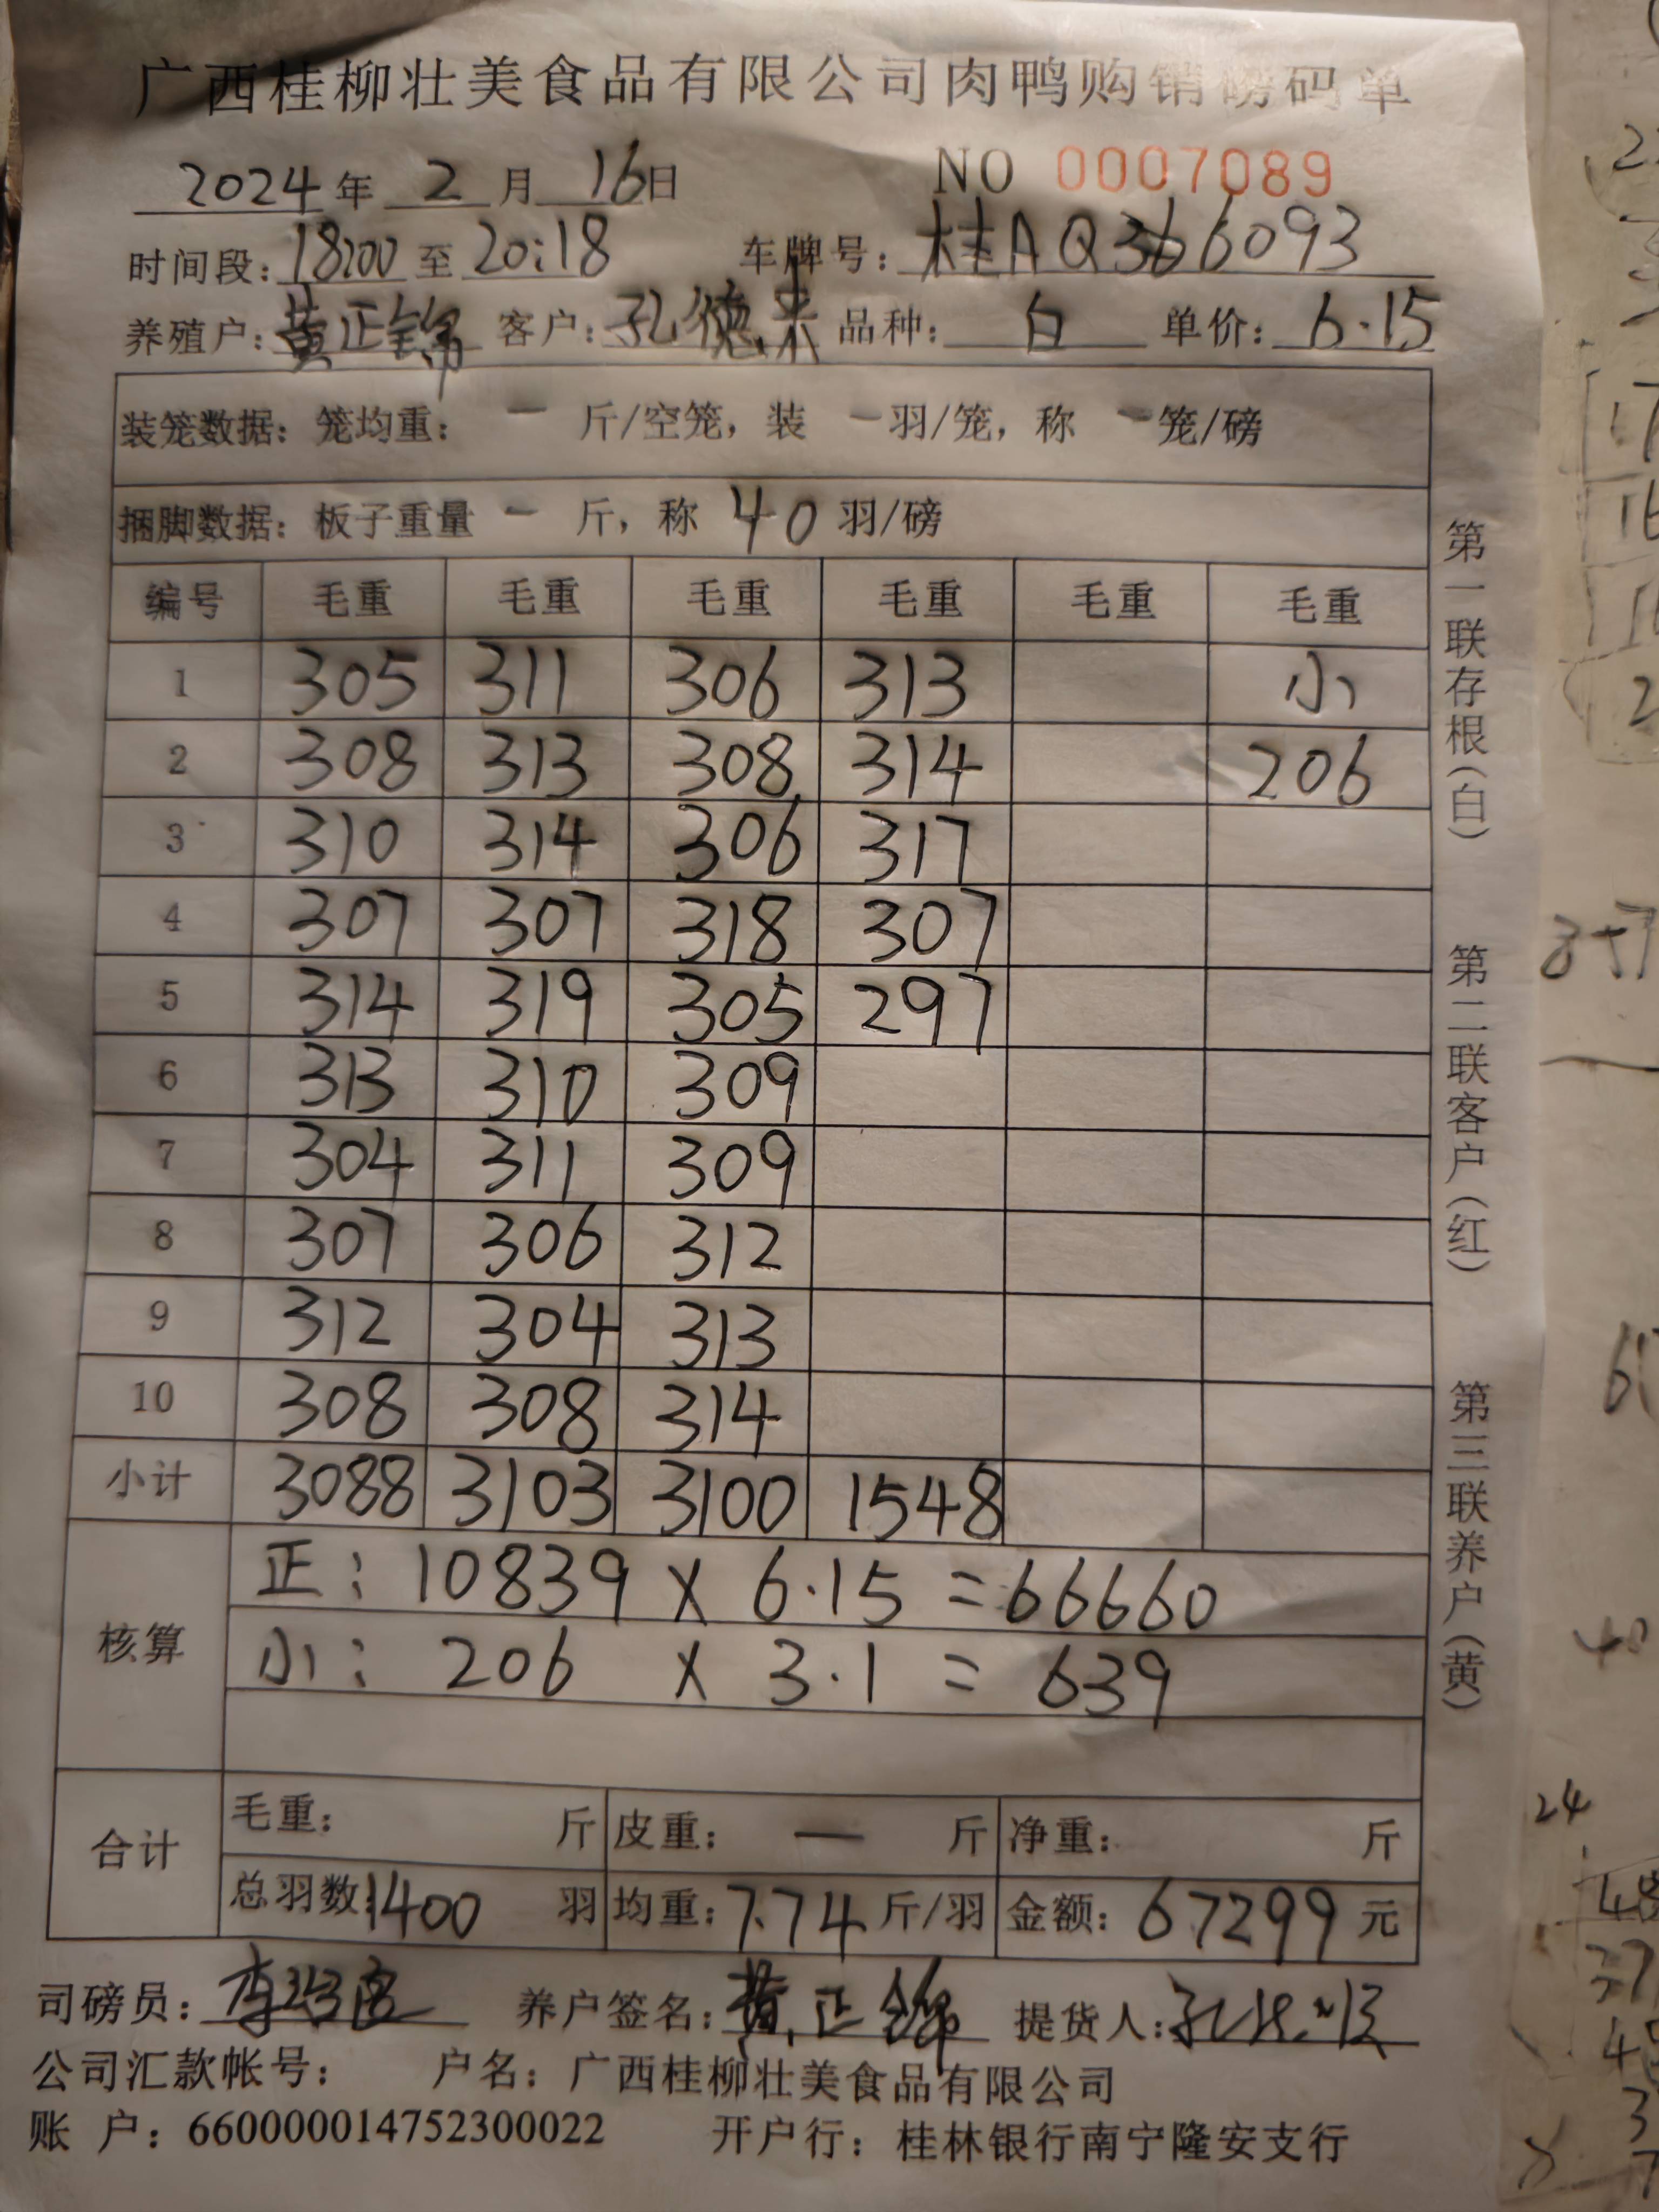 广西桂柳壮美食品有限公司肉鸭购销磅码单
2024年 2月 16日 NO 0007089
时间段：18:00 至 20:18 车牌号：桂AQ366093
养殖户：黄正锦 客户：孔德来 品种： 白 单价：6.15
装笼数据：笼均重： — 斤/空笼，装 — 羽/笼，称 — 笼/磅
捆脚数据：板子重量 — 斤，称 40 羽/磅
编号 毛重 毛重 毛重 毛重 毛重 毛重
1 305 311 306 313 小
2 308 313 308 314 206
3 310 314 306 317
4 307 307 318 307
5 314 319 305 297
6 313 310 309
7 304 311 309
8 307 306 312
9 312 304 313
10 308 308 314
小计 3088 3103 3100 1548
核算
正：10839 X 6.15 =66660
小：206 X 3.1 = 639
合计
毛重： 斤 皮重： — 斤 净重： 斤
总羽数：1400 羽 均重：7.74 斤/羽 金额：67299 元
司磅员： 养户签名：黄正锦 提货人：
公司汇款帐号： 户名：广西桂柳壮美食品有限公司
账 户：660000014752300022 开户行：桂林银行南宁隆安支行
第一联存根（白）
第二联客户（红）
第三联养户（黄）
24